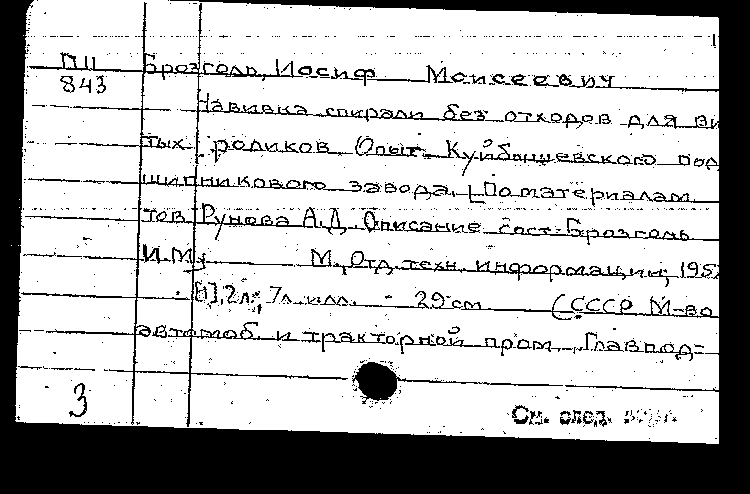 ПII
843
Брозголь, Иосиф Моисеевич
Навивка спирали без отходов для ви
тых роликов. Опыт Куйбышевского под
шипникового завода. [По материалам
тов Рунова А.Д. Описание сост. Брозголь
И.М.] М., Отд. техн. информации, 195
2л., 7л. илл. 29 см (СССР М-во
автомоб. и тракторной пром. Главпод-
3
См. след.